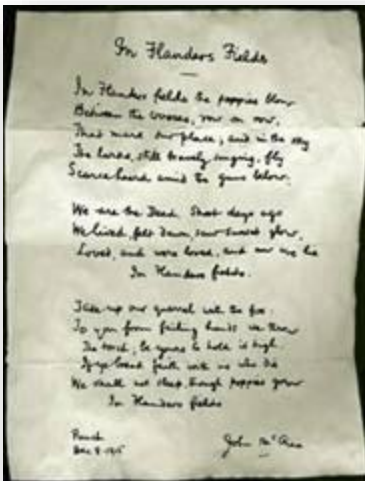 In Flanders Fields
In Flanders fields the poppies blow
Between the crosses, row on row,
That mark our place; and in the sky
The larks, still bravely singing, fly
Scarce heard amid the guns below.
We are the Dead. Short days ago
We lived, felt dawn, saw sunset glow,
Loved, and were loved, and now we lie
In Flanders fields.
Take up our quarrel with the foe:
To you from failing hands we throw
The torch; be yours to hold it high.
If ye break faith with us who die
We shall not sleep, though poppies grow
In Flanders fields
Punch
Dec 8. 1915
John McCrae